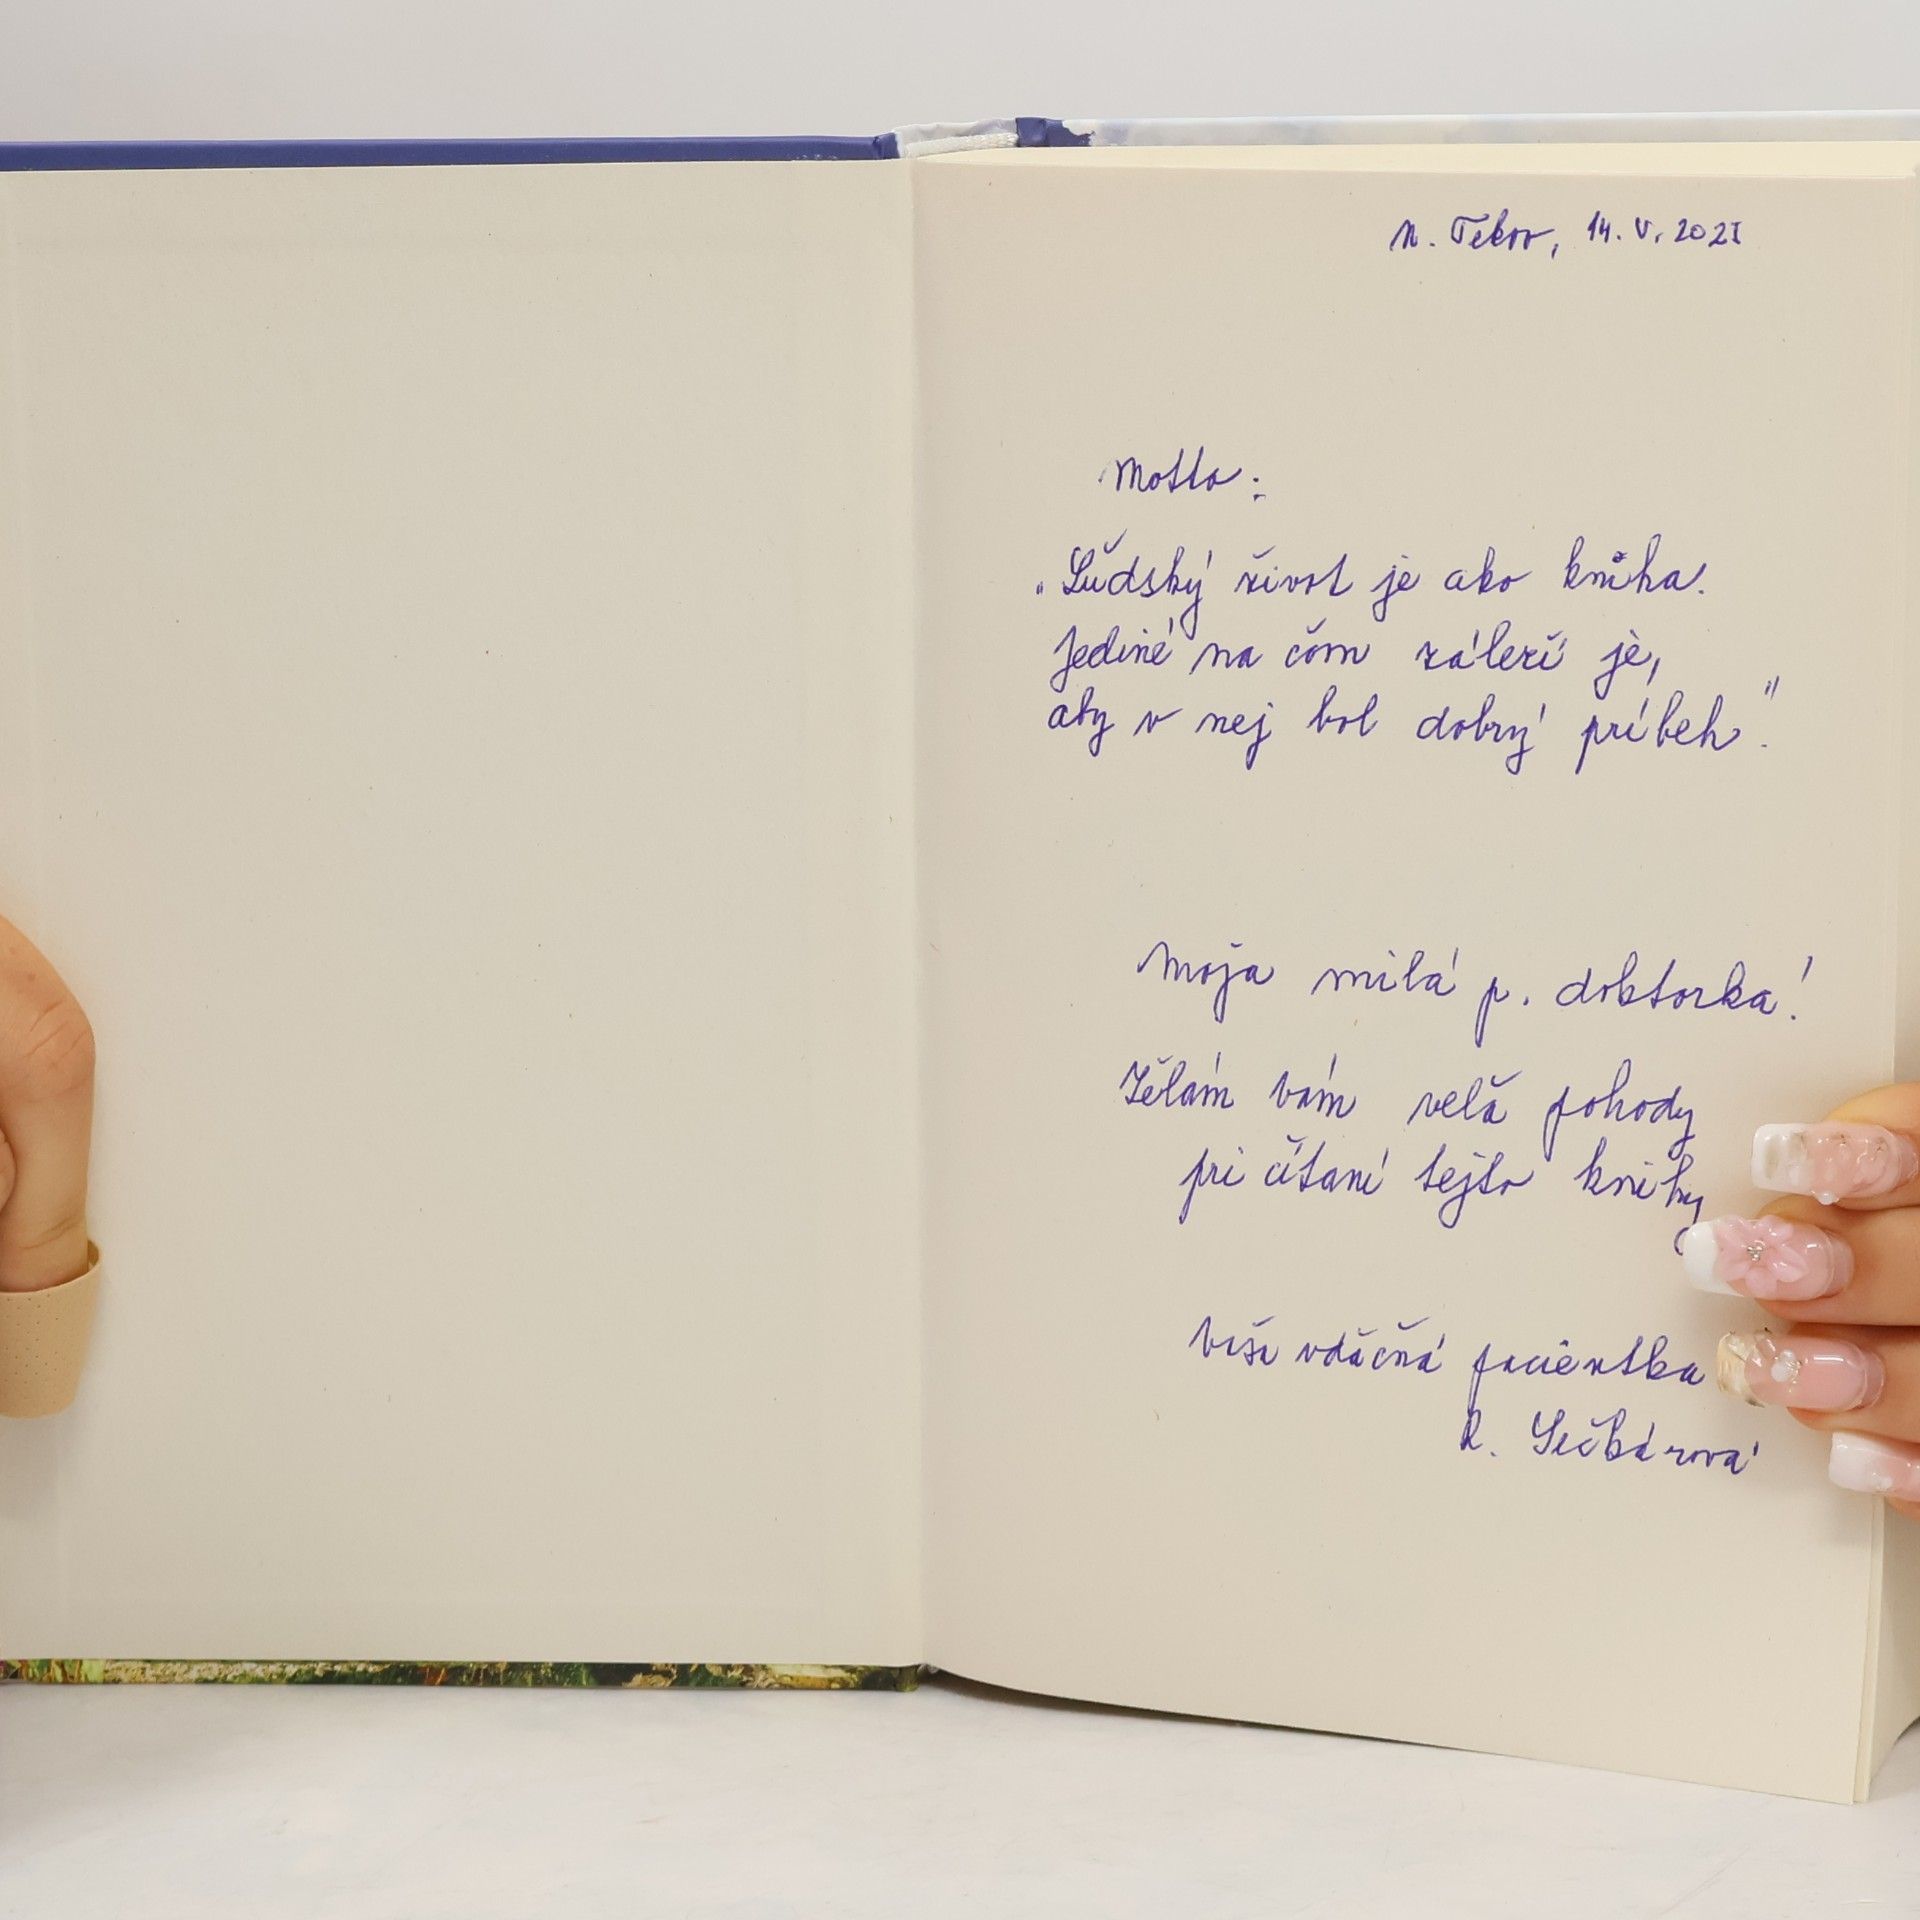 N. Tekov, 14. V. 2021
Motto:
„Ľudský život je ako kniha.
Jediné na čom záleží je,
aby v nej bol dobrý príbeh."
Moja milá p. doktorka!
Želám vám veľa pohody
pri čítaní tejto knihy
vaša vďačná pacientka
R. Sečkárová